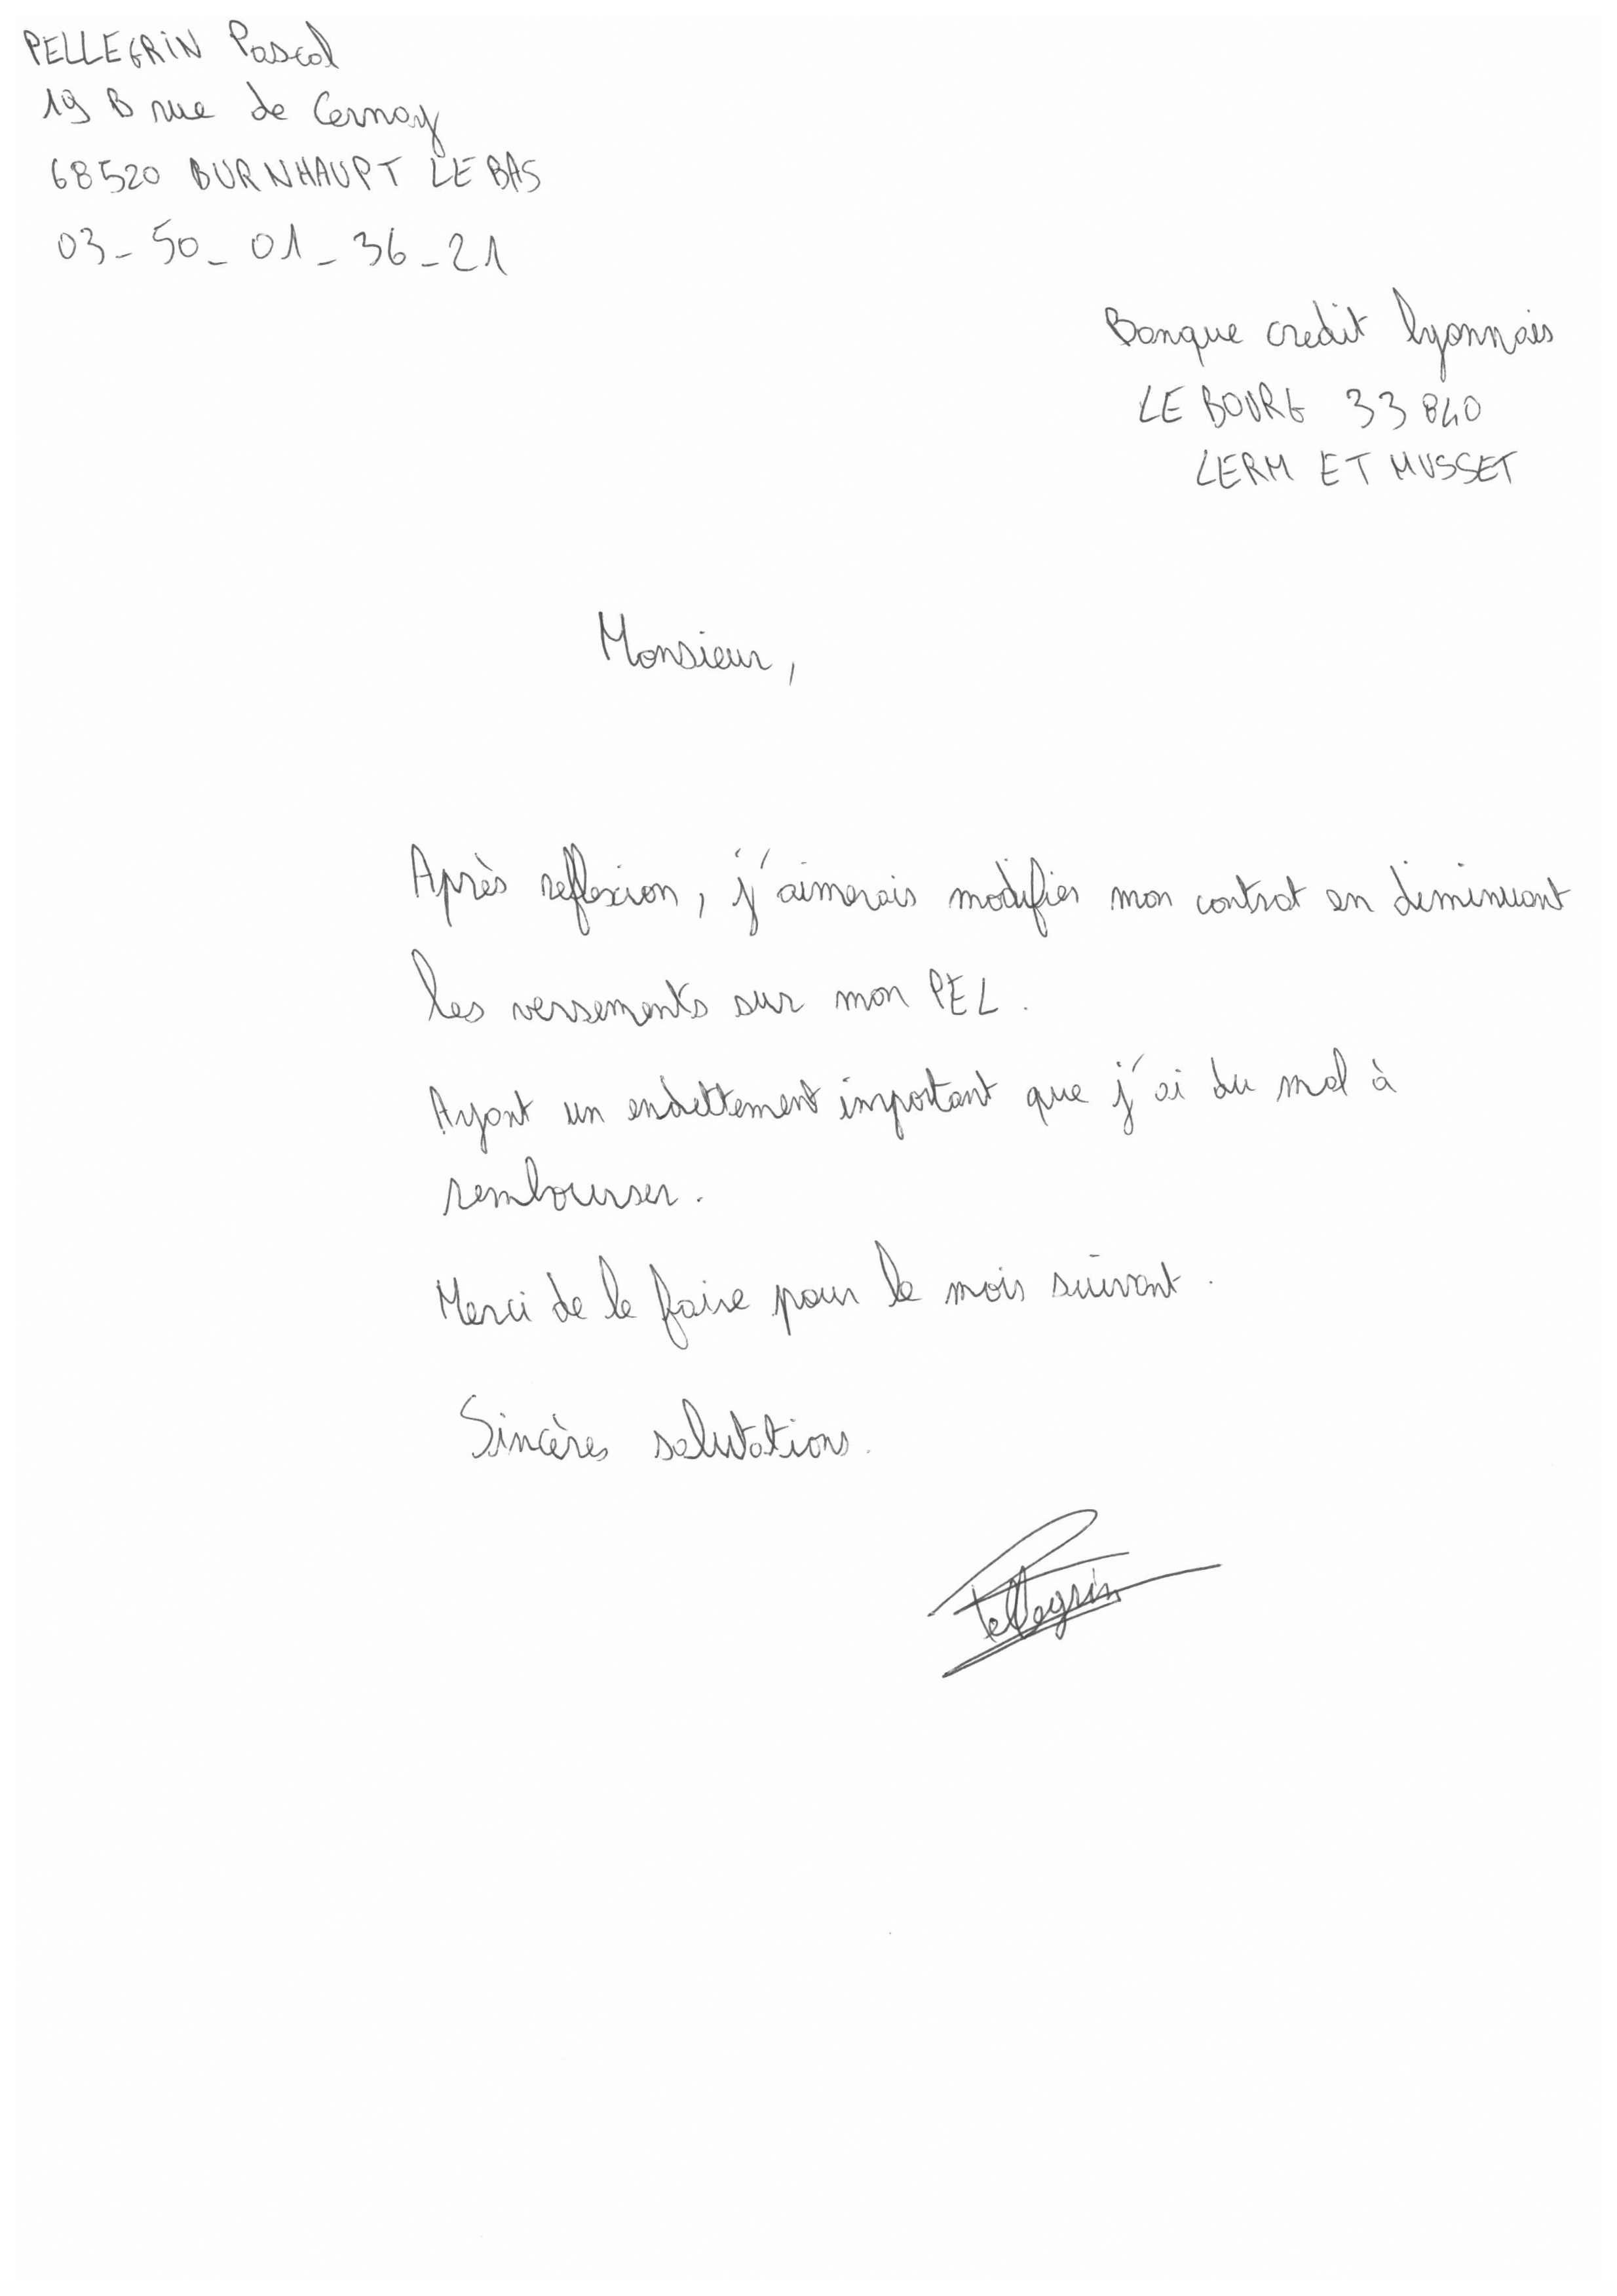 PELLEGRIN Pascal
19 B rue de Cernay
68520 BURNHAUPT LE BAS
03-50-01-36-21
Banque credit lyonnais
LE BOURG 33840
LERM ET MUSSET
Monsieur,
Après reflexion, j'aimerais modifier mon contrat en diminuant
les versements sur mon PEL.
Ayant un endettement important que j'ai du mal à
rembourser.
Merci de le faire pour le mois suivant.
Sincères salutations.
Pellegrin